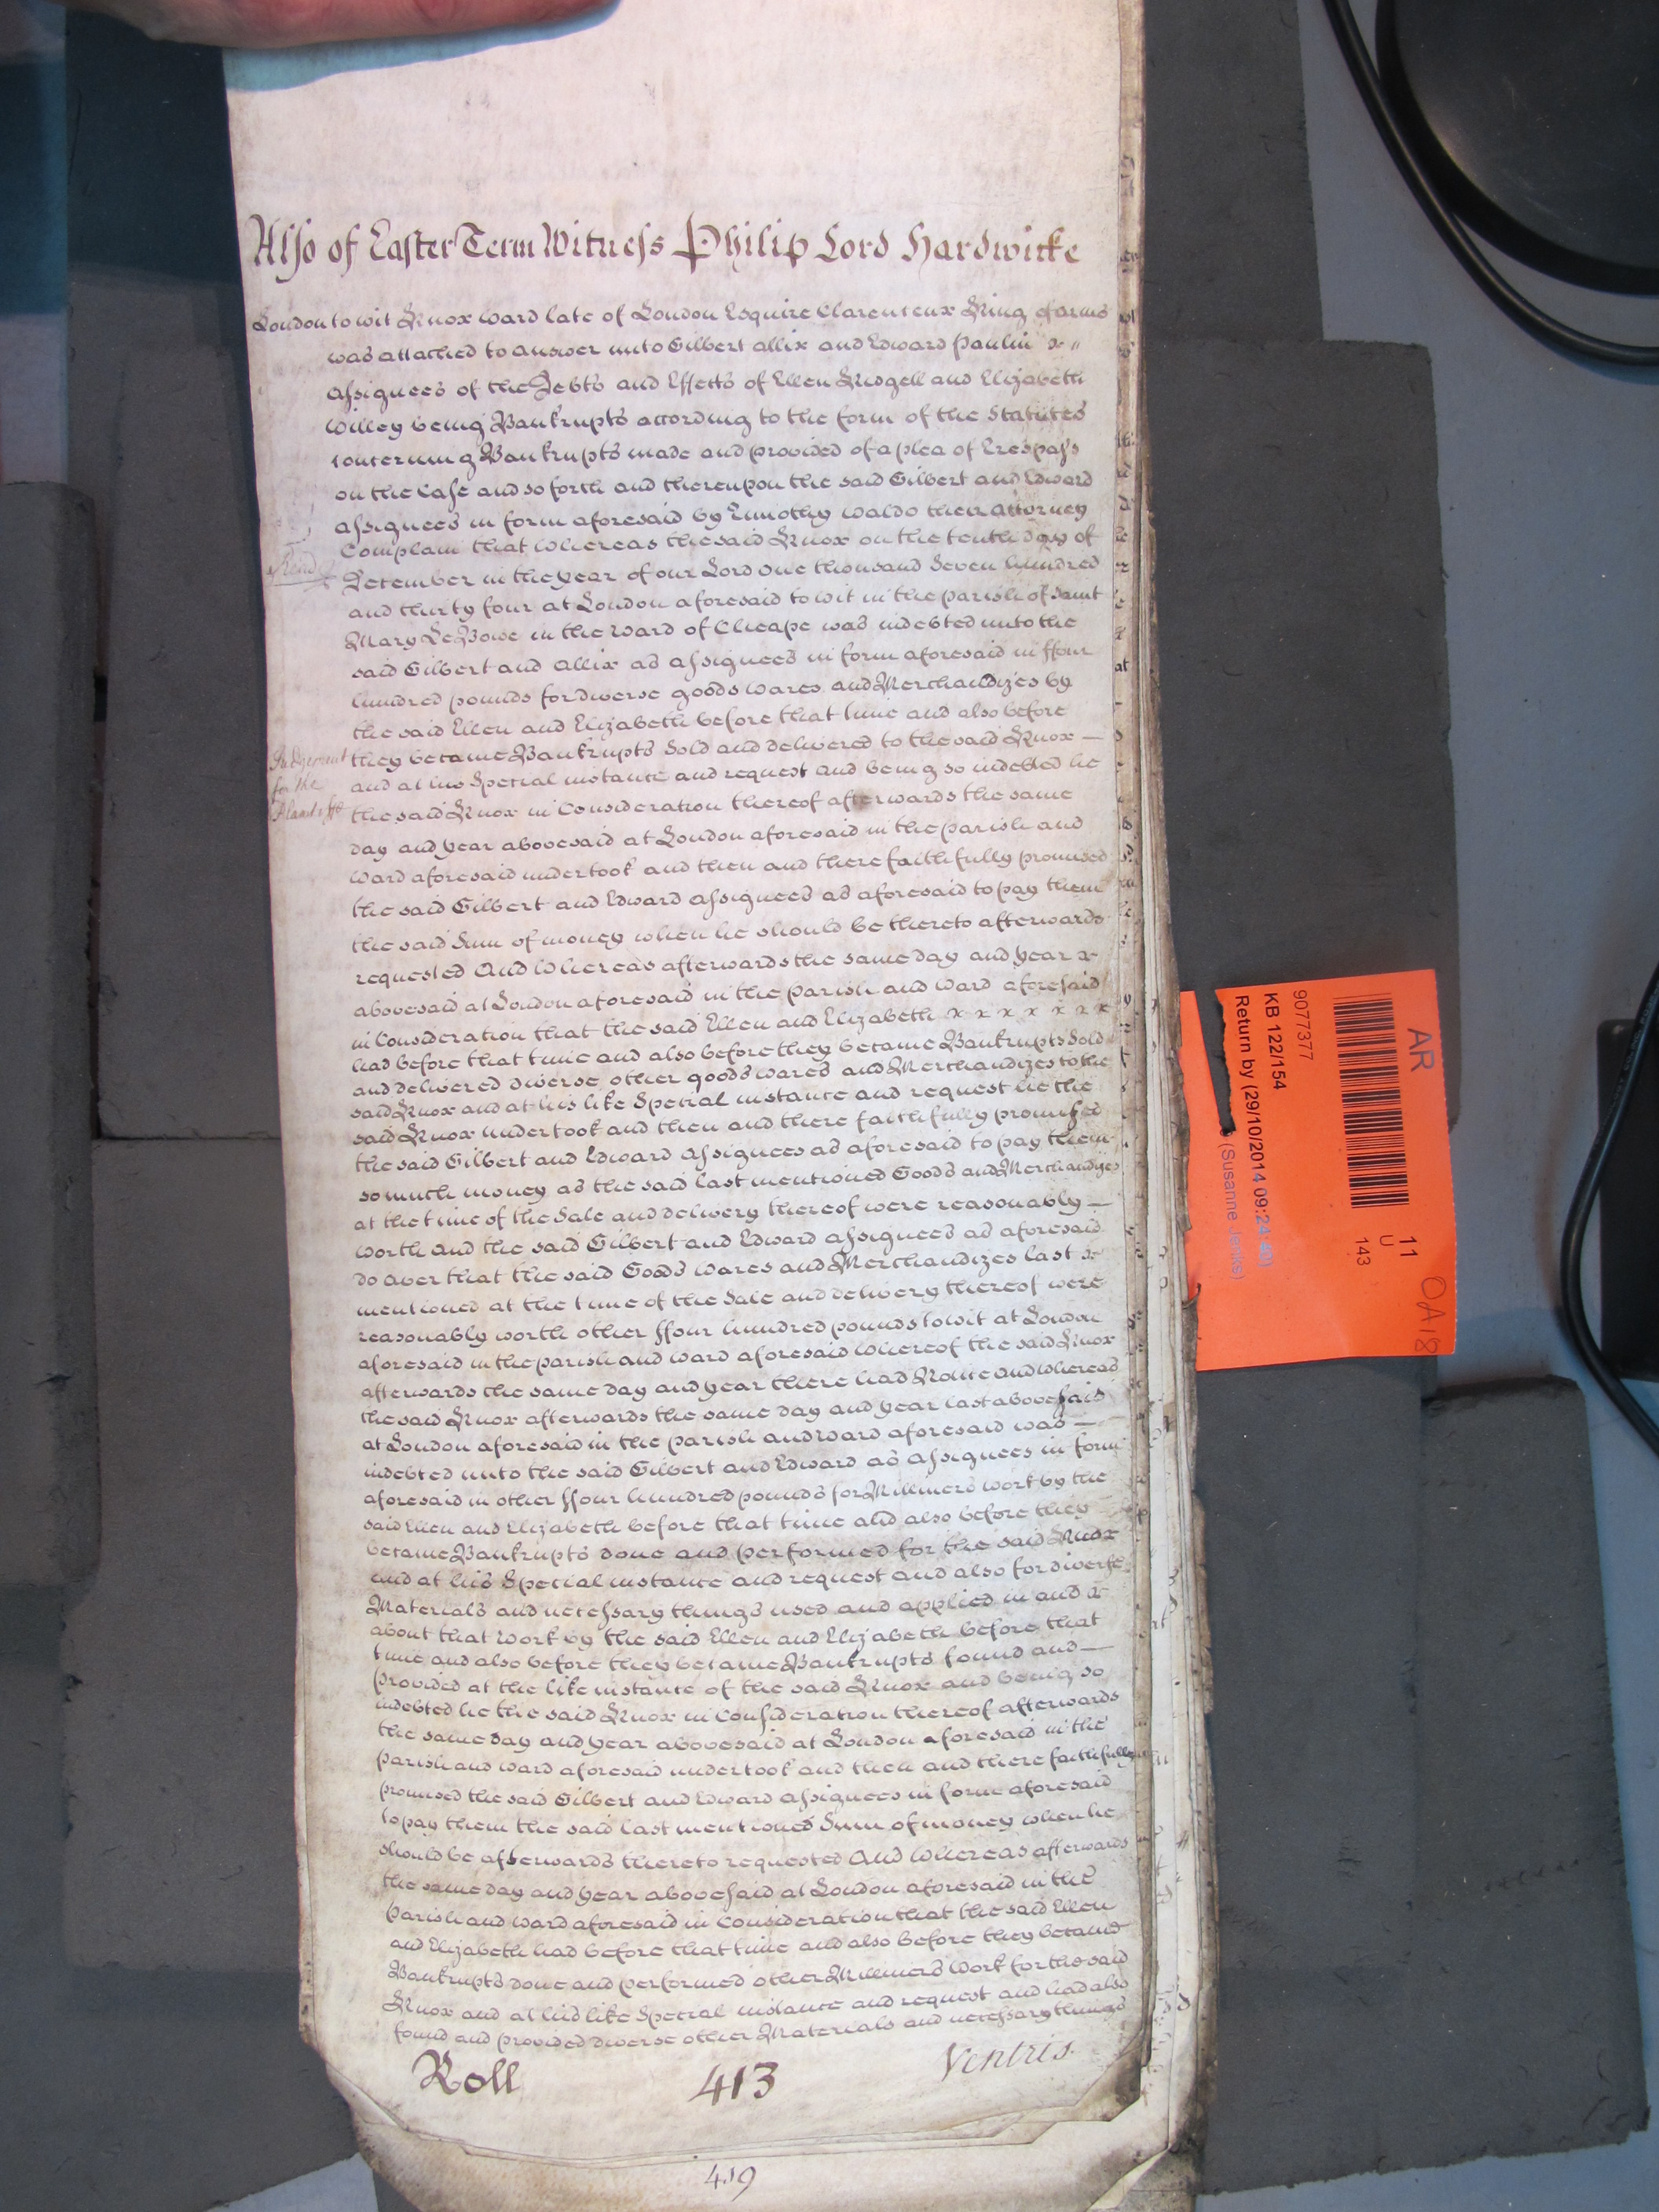 Also of Easter Term Witness Philip Lord Hardwicke
London to wit Knox Ward late of London Esquire Clarenceux King of arms
was attached to answer unto Gilbert Allix and Edward Paulin x "
assignees of the Debts and Effects of Ellen Ridgell and Elizabeth
Willey being Bankrupts according to the form of the Statutes
concerning Bankrupts made and provided of a plea of Trespass
on the Case and so forth and thereupon the said Gilbert and Edward
assignees in form aforesaid by Timothy Waldo their attorney
Complain that whereas the said Knox on the tenth day of
December in the year of our Lord One thousand Seven hundred
and thirty four at London aforesaid to wit in the parish of Saint
Mary Le Bowe in the Ward of Cheape was indebted unto the
said Gilbert and Allix as assignees in form aforesaid in ffour
hundred pounds for diverse goods wares and Merchandizes by
the said Ellen and Elizabeth before that time and also before
Judgement
for the
Plaintiffs
they became Bankrupts Sold and delivered to the said Knox —
and at his Special instance and request and being so indebted he
the said Knox in Consideration thereof afterwards the same
day and year abovesaid at London aforesaid in the parish and
Ward aforesaid undertook and then and there faithfully promised
the said Gilbert and Edward assignees as aforesaid to pay them
the said Sum of money when he should be thereto afterwards
requested And Whereas afterwards the same day and year x
abovesaid at London aforesaid in the parish and ward aforesaid
in Consideration that the said Ellen and Elizabeth x x x x x x
had before that time and also before they became Bankrupts Sold
and delivered diverse other goods wares and Merchandizes to the
said Knox and at his like Special instance and request he the
said Knox undertook and then and there faithfully promised
the said Gilbert and Edward assignees as aforesaid to pay them
so much money as the said last mentioned Goods and Merchandizes
at the time of the Sale and delivery thereof were reasonably —
worth and the said Gilbert and Edward assignees as aforesaid
do aver that the said Goods wares and Merchandizes last x
mentioned at the time of the Sale and delivery thereof were
reasonably worth other ffour hundred pounds to wit at London
aforesaid in the parish and ward aforesaid Whereof the said Knox
afterwards the same day and year there had Notice and Whereas
the said Knox afterwards the same day and year last abovesaid
at London aforesaid in the parish and ward aforesaid was —
indebted unto the said Gilbert and Edward as assignees in form
aforesaid in other ffour hundred pounds for Milliners work by the
said Ellen and Elizabeth before that time and also before they
became Bankrupts done and performed for the said Knox
and at his Special instance and request and also for diverse
Materials and necessary things used and applied in and x
about that Work by the said Ellen and Elizabeth before that
time and also before they became Bankrupts found and —
provided at the like instance of the said Knox and being so
indebted he the said Knox in Consideration thereof afterwards
the same day and year abovesaid at London aforesaid in the
parish and ward aforesaid undertook and then and there faithfully
promised the said Gilbert and Edward assignees in form aforesaid
to pay them the said last mentioned Sum of money when he
should be afterwards thereto requested And Whereas afterwards
the same day and year abovesaid at London aforesaid in the
parish and ward aforesaid in Consideration that the said Ellen
and Elizabeth had before that time and also before they became
Bankrupts done and performed other Milliners Work for the said
Knox and at his like Special instance and request and had also
found and provided diverse other Materials and necessary things
Roll 413 Ventris
419
AR
11
U
143
OA18
9077377
KB 122/154
Return by (29/10/2014 09:24:40)
(Susanne Jenks)